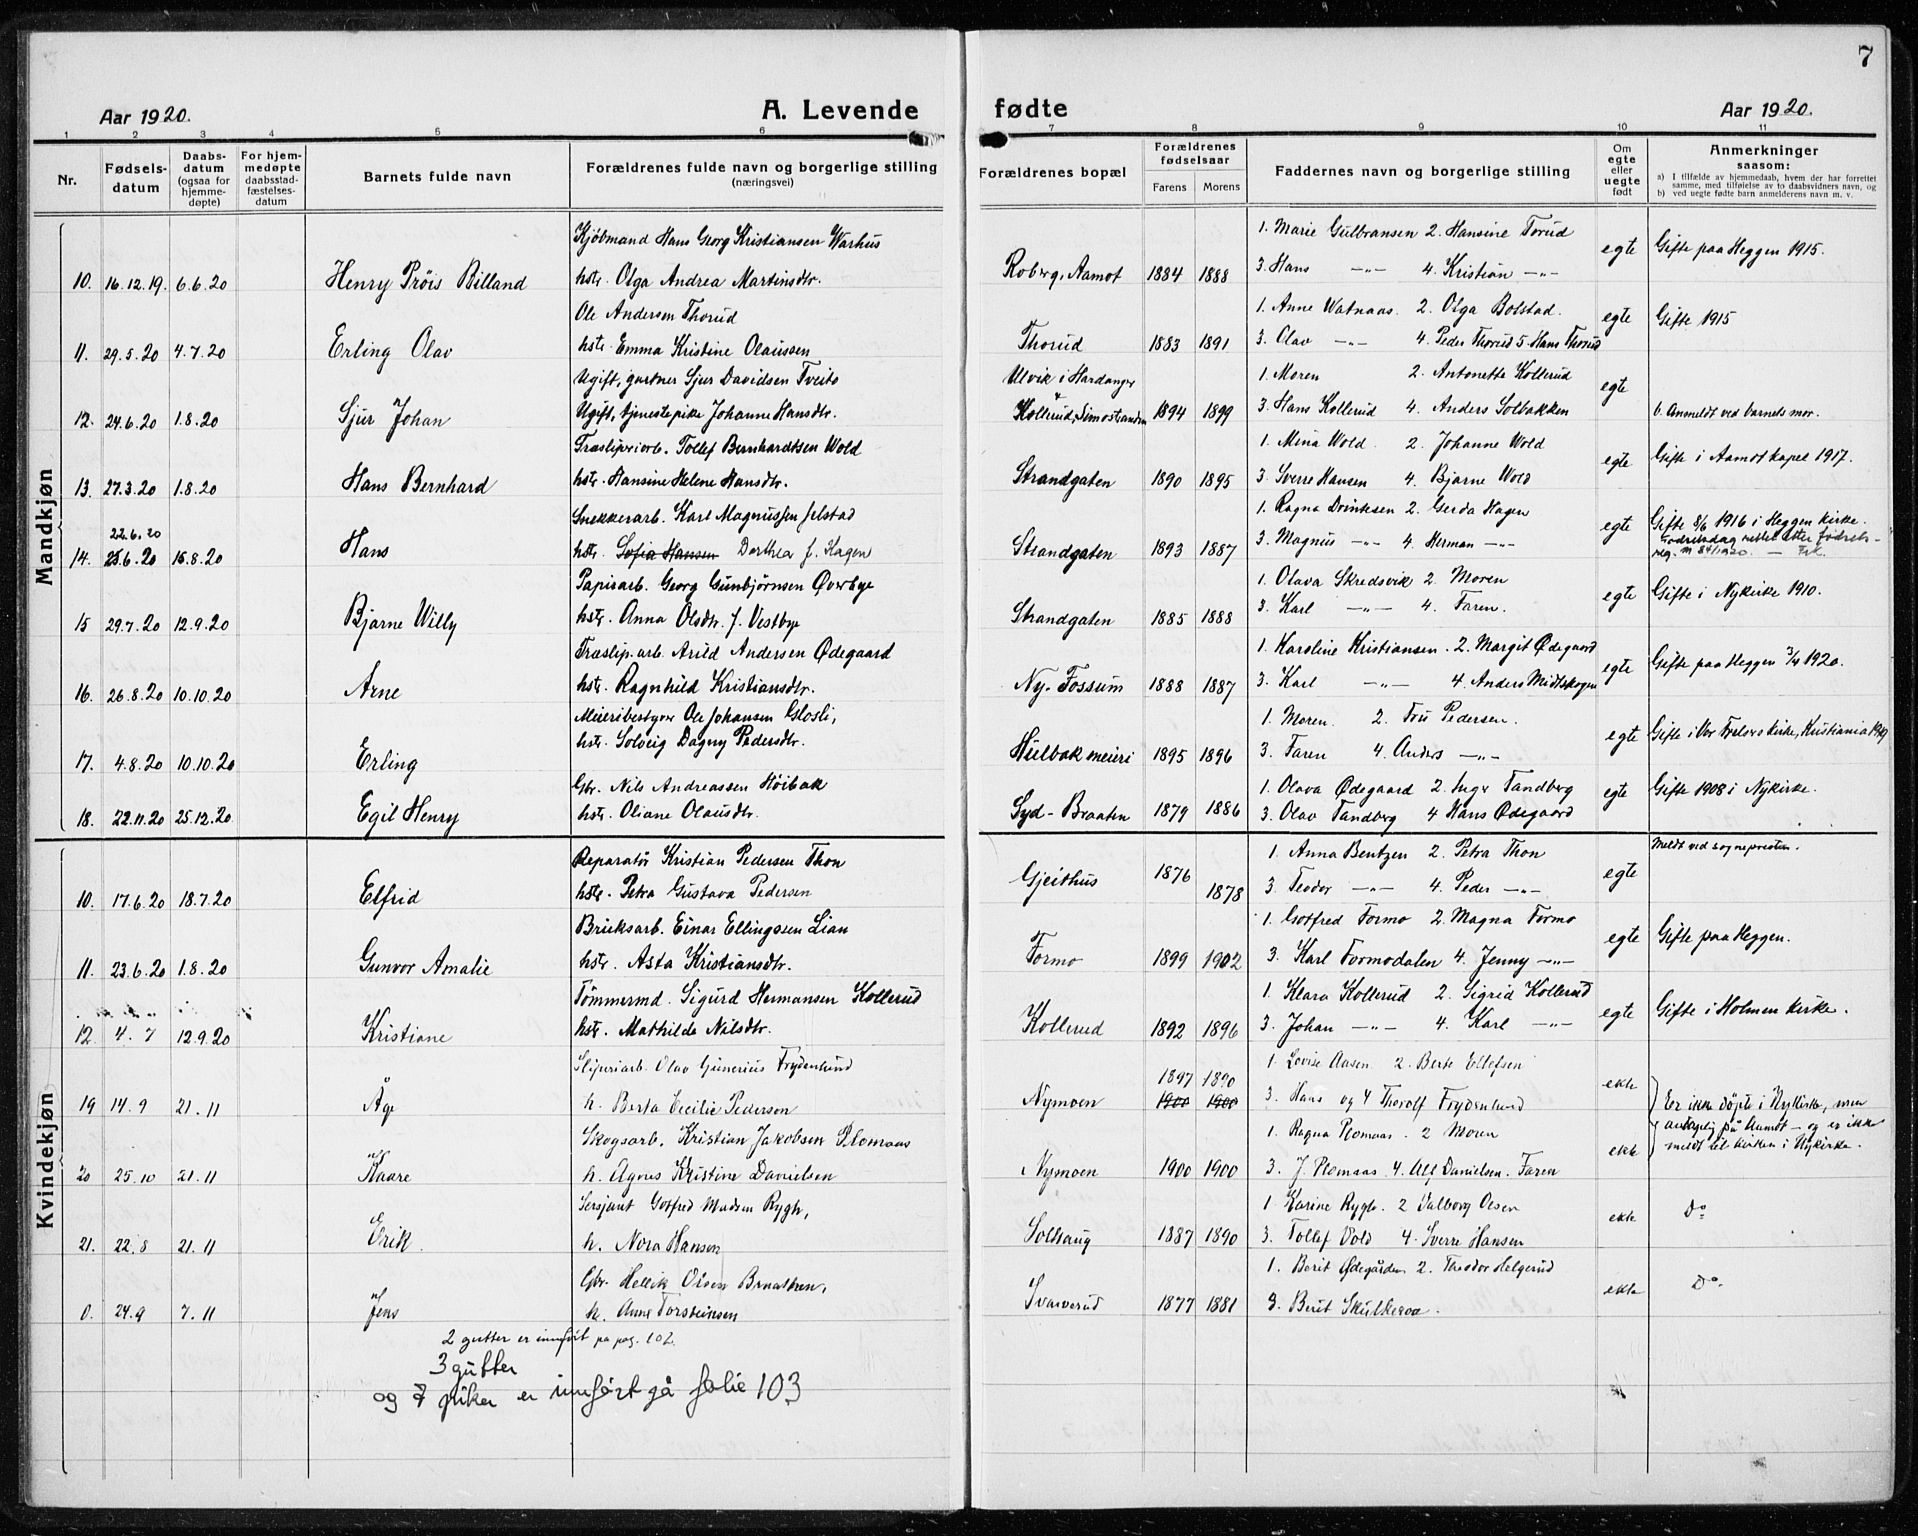 7
Aar 1920. A. Levende fødte Aar 1920.
1 2 3 4 5 6 7 8 9 10 11
Nr. Fødsels-datum Daabs-datum (ogsaa for hjemme-døpte) For hjem-medøpte daabsstad-fæstelses-datum Barnets fulde navn Forældrenes fulde navn og borgerlige stilling (næringsvei) Forældrenes bopæl Forældrenes fødselsaar Farens Morens Faddernes navn og borgerlige stilling Om egte eller uegte født Anmerkninger saasom:
a) I tilfælde av hjemmedaab, hvem der har forrettet samme, med tilføielse av to daabsvidners navn, og
b) ved uegte fødte barn anmelderens navn m. v.
Mandkjøn
Kjöbmand Hans Georg Kristiansen Warhus 1. Marie Gulbransen 2. Hansine Torud
10. 16.12.19. 6.6.20 Henry Pröis Billand hstr. Olga Andrea Martinsdtr. Roberg, Aamot 1884 1888 3. Hans -„- 4. Kristian -„- egte Gifte paa Heggen 1915.
Ole Andersen Thorud 1. Anne Watnaas 2. Olga Bolstad.
11. 29.5.20 4.7.20 Erling Olav hstr. Emma Kristine Olaussen Thorud 1883 1891 3. Olav -„- 4. Peder Thorud 5. Hans Thorud egte Gifte 1915
Ugift, gartner Sjur Davidsen Tveito Ulvik i Hardanger 1. Moren 2. Antonette Kollerud
12. 24.6.20 1.8.20 Sjur Johan Ugift, tjenestepike Johanne Hansdtr. Kollerud, Simostranden 1894 1899 3. Hans Kollerud 4. Anders Solbakken egte b. Anmeldt ved barnets mor.
Træsliperiarb. Tollef Bernhardtsen Wold 1. Mina Wold 2. Johanne Wold
13. 27.3.20 1.8.20 Hans Bernhard hstr. Hansine Helene Hansdtr. Strandgaten 1890 1895 3. Sverre Hansen 4. Bjarne Wold egte Gifte i Aamot kapel 1917.
22.6.20 Snekkerarb. Karl Magnussen Jelstad 1. Ragna Drinksen 2. Gerda Hagen
14. 25.6.20 15.8.20 Hans hstr. Sofia Hansen Dorthea f. Hagen Strandgaten 1893 1887 3. Magnus -„- 4. Herman -„- egte Gifte 8/6 1916 i Heggen kirke.
Fødselsdag rettet etter fødsels-
reg. m 84/1920. -
Papirarb. Georg Gunbjørnsen Øverbye 1. Olava Skredsvik 2. Moren
15 29.7.20 12.9.20 Bjarne Willy hstr. Anna Olsdtr. f. Vestbye Strandgaten 1885 1888 3. Karl -„- 4. Faren. egte Gifte i Nykirke 1910.
Træslip.arb. Arild Andersen Ødegaard 1. Karoline Kristiansen. 2. Margit Ødegaard
16. 26.8.20 10.10.20 Arne hstr. Ragnhild Kristiansdtr. Ny-Fossum 1888 1887 3. Karl -„- 4. Anders Midtskogen egte Gifte paa Heggen 3/4 1920.
Meieribestyrer Ole Johansen Glosli, 1. Moren. 2. Fru Pedersen.
17. 4.8.20 10.10.20 Erling hstr. Solveig Dagny Pedersdtr. Hulbak meieri 1895 1896 3. Faren 4. Anders -„- egte Gifte i Vor Frelsers Kirke, Kristiania 1919
Gbr. Nils Andreassen Höibak 1. Olava Ødegaard 2. Inger Tandberg
18. 22.11.20 25.12.20 Egil Henry hstr. Oliane Olausdtr. Syd-Braaten 1879 1886 3. Olav Tandberg 4 Hans Ødegaard egte Gifte 1908 i Nykirke.
Kvindekjøn
Reparatör Kristian Pedersen Thon 1. Anna Bentzen 2. Petra Thon Meldt ved sognepresten.
10. 17.6.20 18.7.20 Elfrid hstr. Petra Gustava Pedersen Gjeithus 1876 1878 3. Teodor -„- 4. Peder -„- egte
Bruksarb. Einar Ellingssen Lian 1. Gotfred Formo 2. Magna Formo
11. 23.6.20 1.8.20 Gunvor Amalie hstr. Asta Kristiansdtr. Formo 1899 1902 3. Karl Formodalen 4. Jenny -„- egte Gifte paa Heggen.
Tömmermd. Sigurd Hermansen Kollerud 1. Klara Kollerud 2. Sigrid Kollerud
12. 4.7 12.9.20 Kristiane hstr. Mathilde Nilsdtr. Kollerud 1892 1896 3. Johan -„- 4. Karl -„- egte Gifte i Holmen kirke.
Sliperiarb. Olav Gunerius Frydenlund 1897 1890 1. Lovise Aasen 2. Berte Ellefsen
19 14.9 21.11 Åge h. Berta Cecilie Pedersen Nymoen 1900 1900 3. Hans og 4 Thorolf Frydenlund ekte Er ikke döpte i Nykirke, men
antagelig på Aamot - og er ikke
meldt til kirken i Nykirke.
Skogsarb. Kristian Jakobsen Plomaas 1. Ragna Plomaas. 2 Moren
20 25.10 21.11 Kaare h. Agnes Kristine Danielsen Nymoen 1900 1900 3. J. Plomaas. 4. Alf Danielsen. Faren ekte
Sersjant Gotfred Madsen Rygh, 1. Karine Rygh. 2 Valborg Olsen
21. 22.8 21.11 Erik. h. Nora Hansen Solhaug 1887 1890 3. Tollef Vold 4. Sverre Hansen ekte Do
Gbr. Hellik Olsen Braathen, 1. Berit Ødegården 2. Theodor Helgerud
0. 24.9 7.11 Jens h. Anne Torsteinsen Svarverud 1877 1881 3. Berit Skulkerva. ekte Do.
2 gutter er innført pa pag. 102.
3 gutter
og 7 piker er innført på folie 103